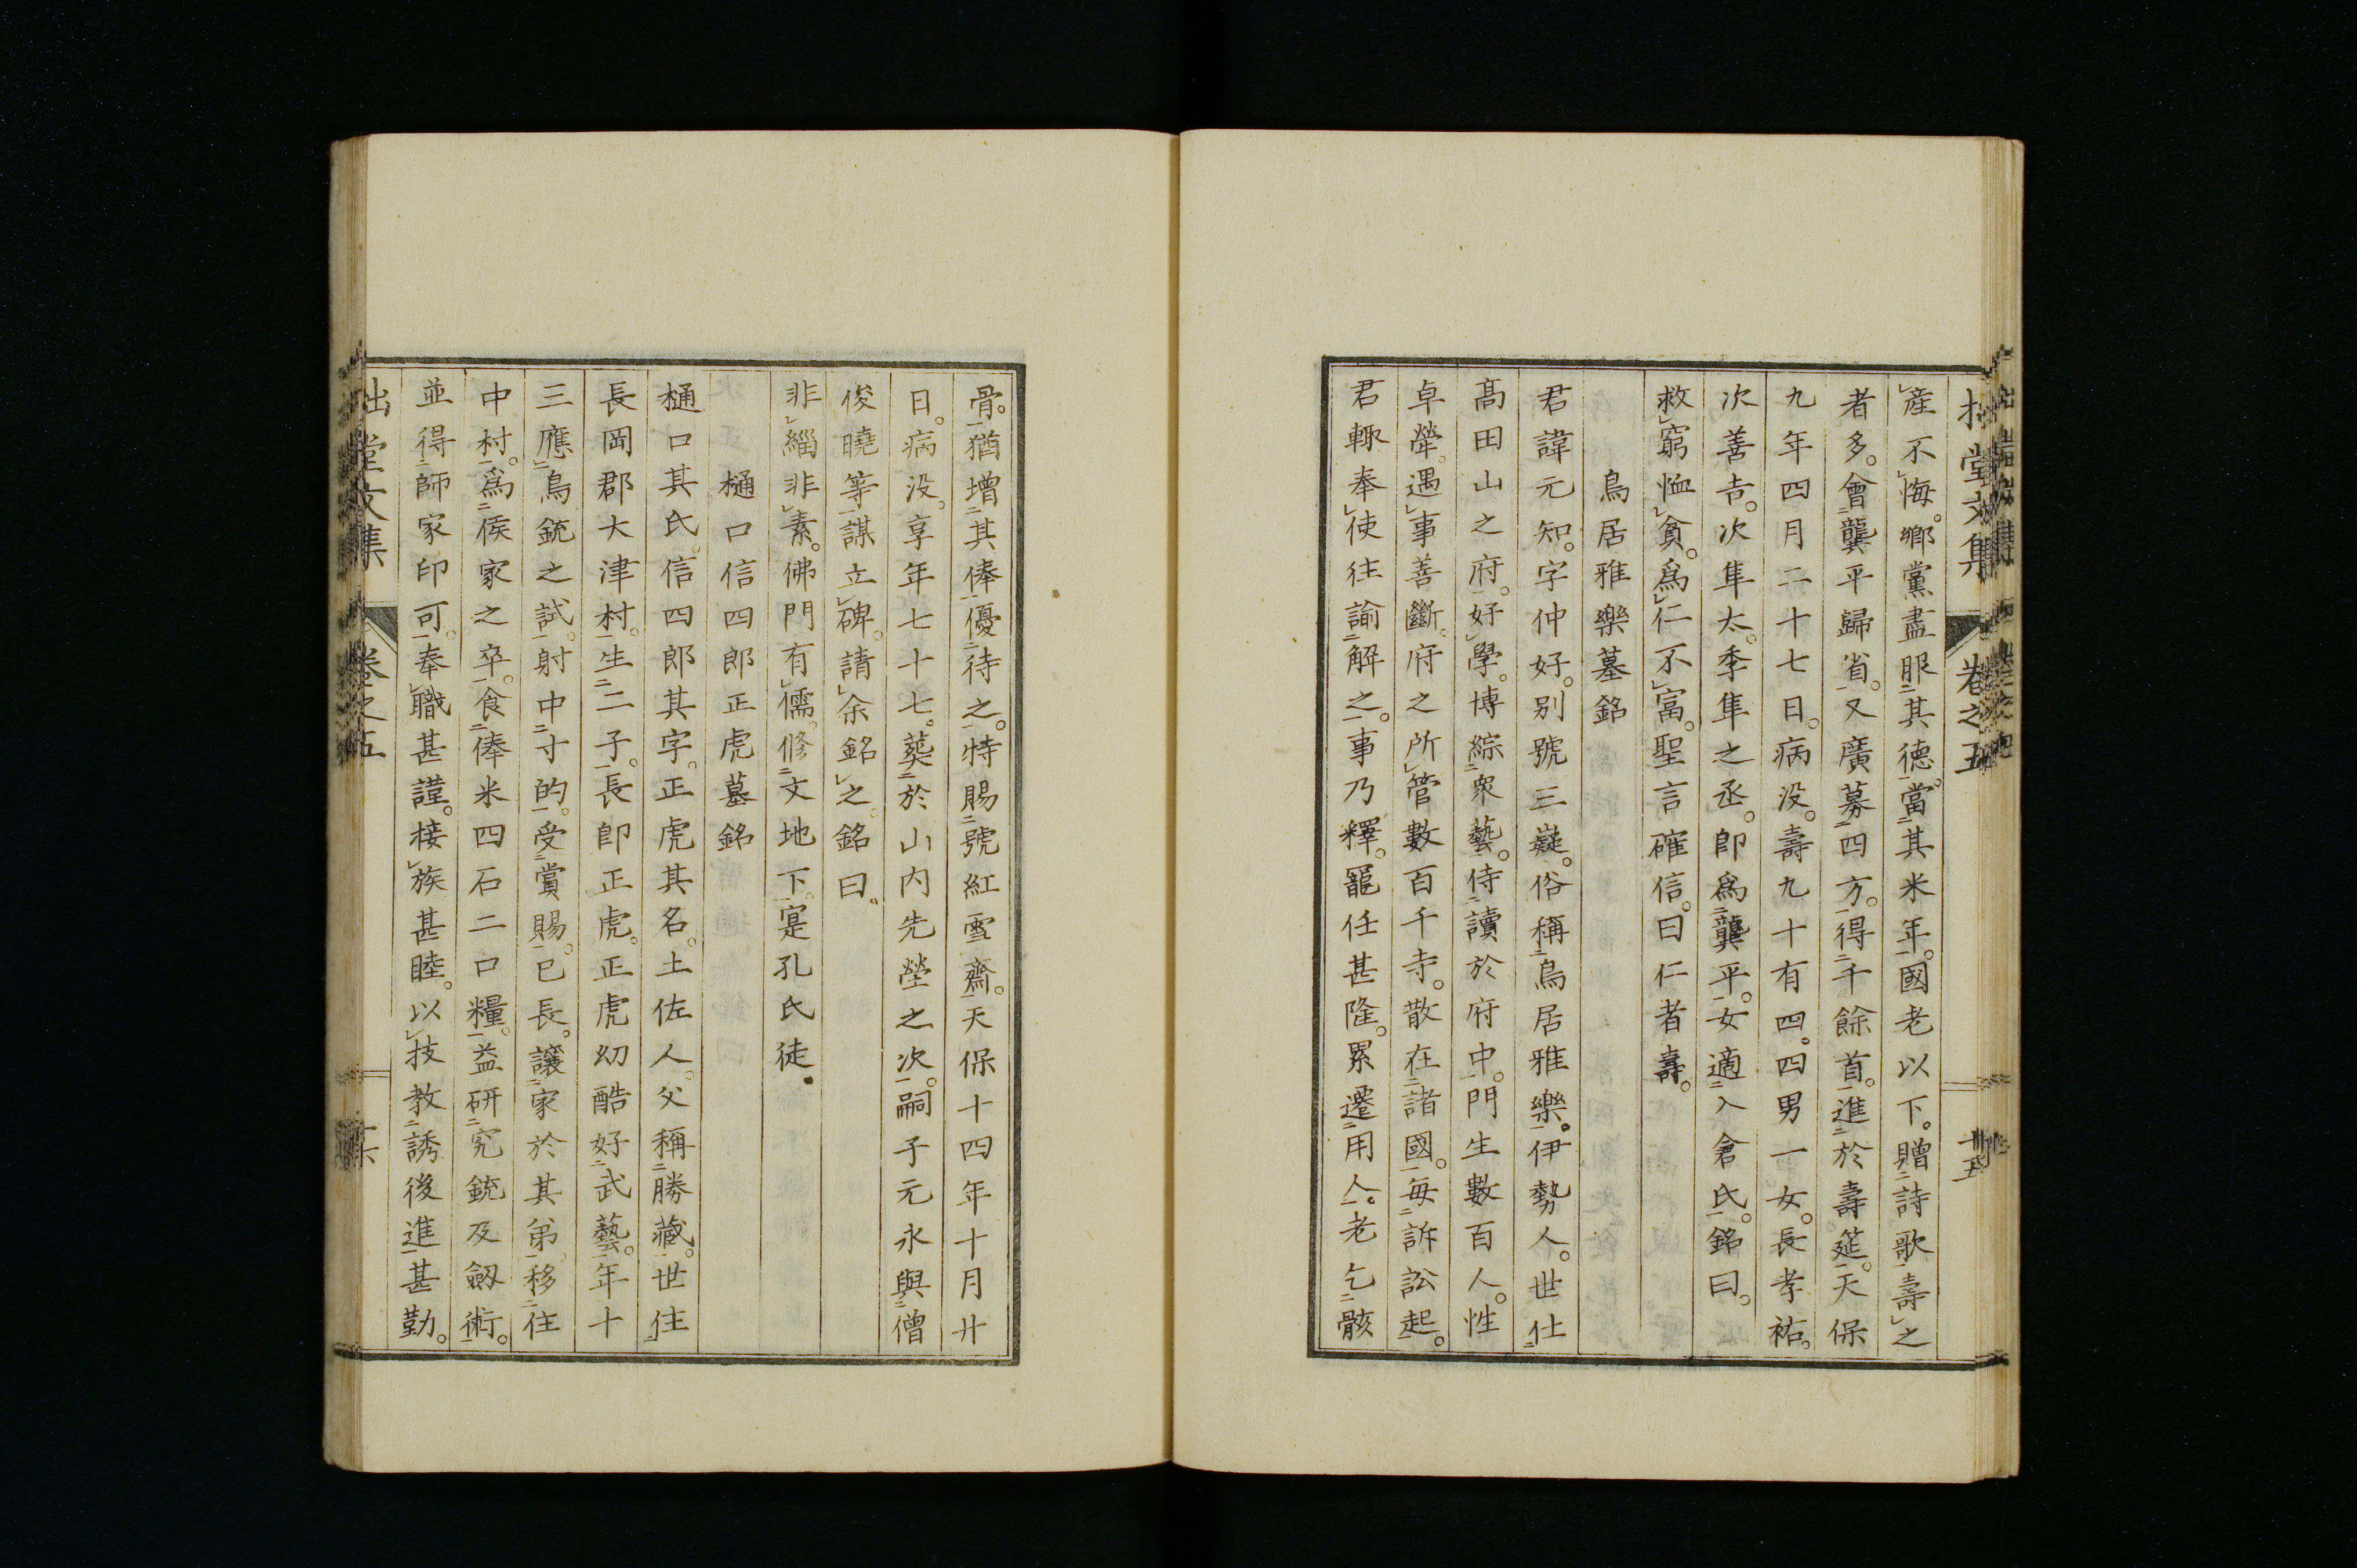 拙堂文集 卷之五
産不悔。鄉黨盡服其德。當其米年。國老以下。贈詩歌壽之
者多。會龔平歸省。又廣募四方。得千餘首。進於壽筵。天保
九年四月二十七日。病没。壽九十有四。四男一女。長孝祐。
次善吉。次隼太。季隼之丞。卽爲龔平。女適入倉氏。銘曰。
救窮恤貧。爲仁不富。聖言確信。曰仁者壽。
鳥居雅樂墓銘
君諱元知。字仲好。別號三嶷。俗稱鳥居雅樂。伊勢人。世仕
髙田山之府。好學。博綜衆藝。侍讀於府中。門生數百人。性
卓犖。遇事善斷。府之所管數百千寺。散在諸國。每訴訟起。
君輙奉使往諭解之。事乃釋。寵任甚隆。累遷用人。老乞骸
骨。猶增其俸優待之。特賜號紅雪齋。天保十四年十月廿
日。病没。享年七十七。葬於山内先塋之次。嗣子元永與僧
俊曉等謀立碑。請余銘之。銘曰。
非緇非素。佛門有儒。修文地下。寔孔氏徒。
樋口信四郎正虎墓銘
樋口其氏。信四郎其字。正虎其名。土佐人。父稱勝藏。世住
長岡郡大津村。生二子。長卽正虎。正虎幼酷好武藝。年十
三應鳥銃之試。射中寸的。受賞賜。已長。讓家於其弟。移住
中村。爲侯家之卒。食俸米四石二口糧。益研究銃及劔術。
並得師家印可。奉職甚謹。接族甚睦。以技教誘後進甚勤。
拙堂文集 卷之五